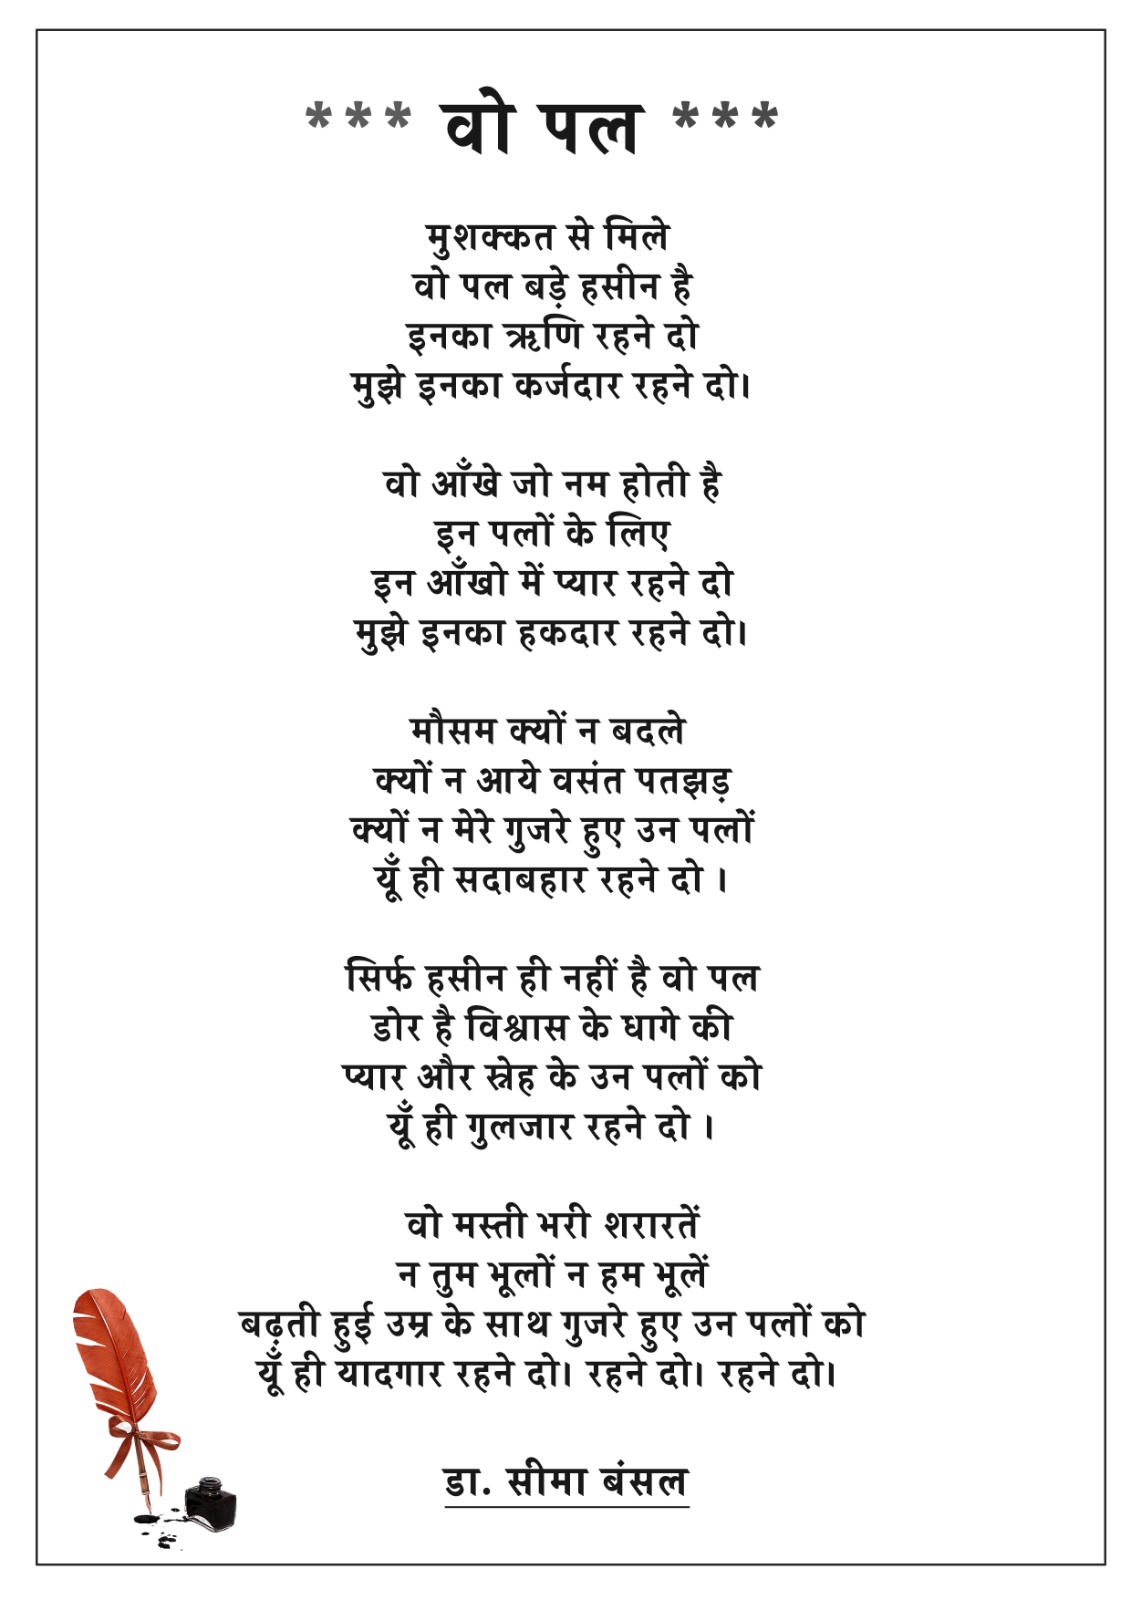 *** वो पल ***
मुशक्कत से मिले
वो पल बड़े हसीन है
इनका ऋणि रहने दो
मुझे इनका कर्जदार रहने दो।
वो आँखे जो नम होती है
इन पलों के लिए
इन आँखो में प्यार रहने दो
मुझे इनका हकदार रहने दो।
मौसम क्यों न बदले
क्यों न आये वसंत पतझड़
क्यों न मेरे गुजरे हुए उन पलों
यूँ ही सदाबहार रहने दो ।
सिर्फ हसीन ही नहीं है वो पल
डोर है विश्वास के धागे की
प्यार और स्नेह के उन पलों को
यूँ ही गुलजार रहने दो ।
वो मस्ती भरी शरारतें
न तुम भूलों न हम भूलें
बढ़ती हुई उम्र के साथ गुजरे हुए उन पलों को
यूँ ही यादगार रहने दो। रहने दो। रहने दो।
डा. सीमा बंसल